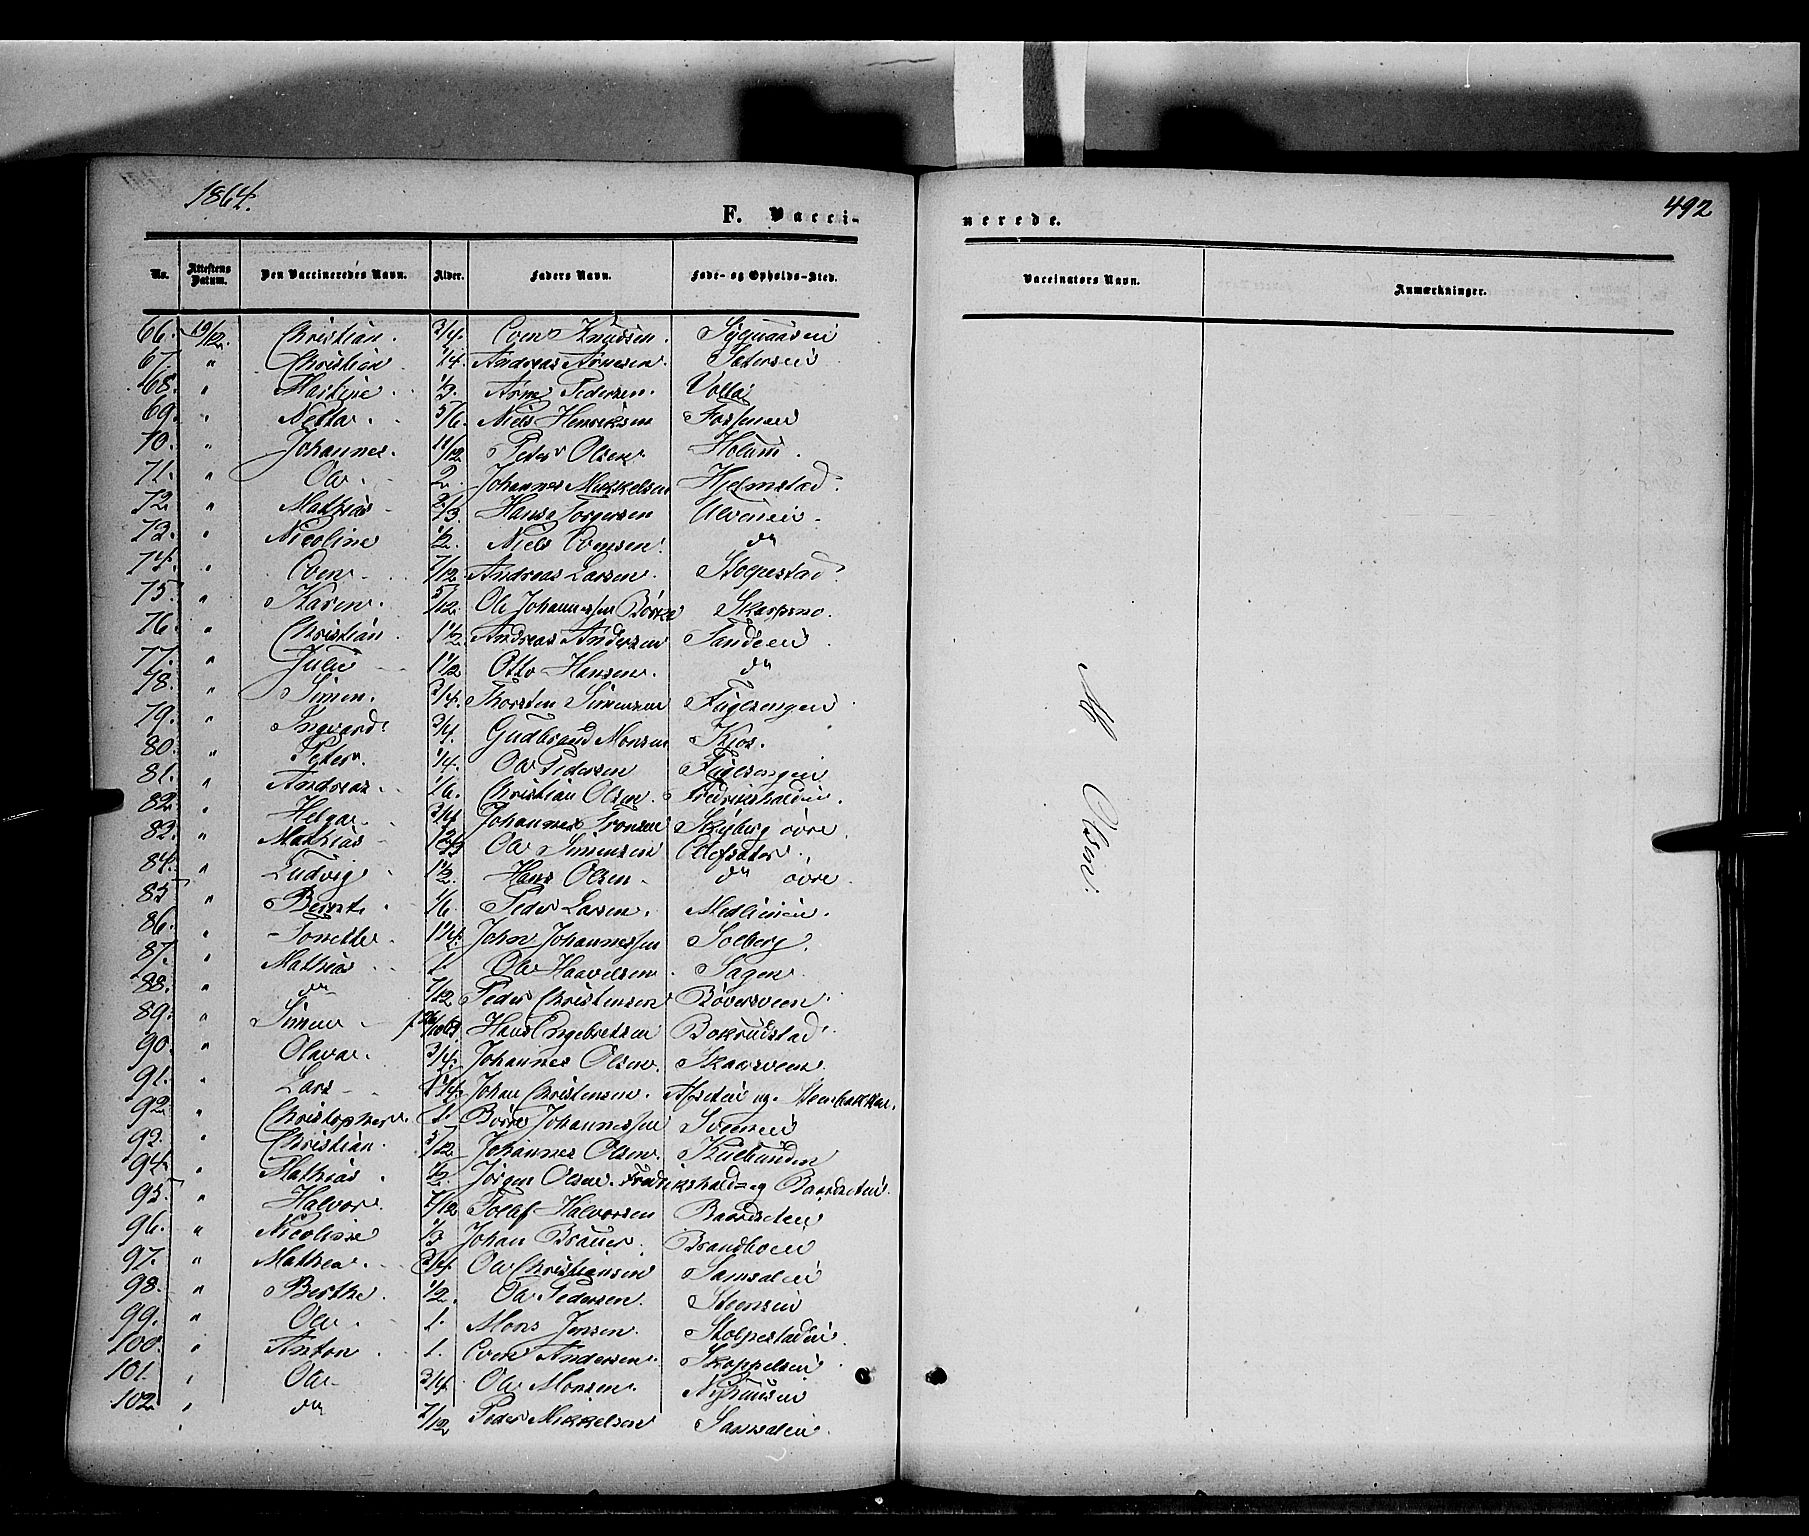 1864.
F. Vacci-
nerede.
492
No. Attestens Datum. Den Vaccineredes Navn. Alder. Faders Navn. Føde- og Opholds-Sted.
Vaccinators Navn. Anmærkninger.
66. 19/12. Christian. 3/4. Even Knudsen.
67. " Christian 1/4. Andreas Arnesen.
68. " Martine 1/3. Arne Pedersen. Volla
69. " Netta. 5/6. Niels Henriksen
70. " Johannes. 11/12 Peder Olsen Holum.
71. " Ole. 2. Johannes Mikkelsen Hjelmstad.
72. " Mathias 2/3. Hans Torgersen Ulveneie.
73. " Nicoline 1/2. Niels Evensen. do
74. " Even. 7/12. Andreas Larsen. Stolpestad.
75. " Karen. 5/12. Ole Johannessen Børke Skarpsno.
76. " Christian. 1 1/2. Andreas Andersen
77. " Julie 1 1/2 Otto Hansen. do
78. " Simen. 3/4. Thorsten Simensen Fuglsengen
79. " Ingvard. 3/4. Gudbrand Monsen Kjos.
80. " Peter. 1/4. Ole Pedersen Fuglsengen
81. " Andreas. 1/6. Christian Olsen. Fredrikshalden.
82. " Helga. 3/4. Johannes Tronsen Skyberg øvre.
83. " Mathias Ole Simensen Olefsater.
84. " Ludvig. 1 1/2. Hans Olsen. do øvre.
85. " Bernt. 1/6. Peder Larsen.
86. " Tonette. 1 1/4. John Johannessen Solberg.
87. " Mathias 1. Ole Haavelsen. Sagen.
88. " do 7/12 Peder Christensen Bøversveen.
89. " Simen Hans Engebretsen Bokrudstad.
90. " Olava. 3/4. Johannes Olsen. Skaarsveen
91. " Lars 1 1/4. Johan Christensen.
92. " Christopher. 1. Børre Johannessen Sveneie
93. " Christian. 5/12 Johannes Olsen.
94. " Mathias. 1/2. Jørgen Olsen. Fredrikshald og Baardseteie.
95. " Halvor. 7/12 Tollef Halvorsen Baardseteie
96. " Nicoline 1/3 Johan Brauer.
97. " Mathea. 3/4. Ole Christiansen Samsaleie
98. " Berthe. 1/2. Ole Pedersen. Steenseie
99. " Ole. 1. Mons Jensen. Stolpestadeie.
100. " Anton 1. Even Andersen. Skappelseie
101. " Ole 3/4. Ole Monsen. Nyhuuseie
102. " do 7/12 Peder Mikkelsen Samsaleie.
M Olsen.